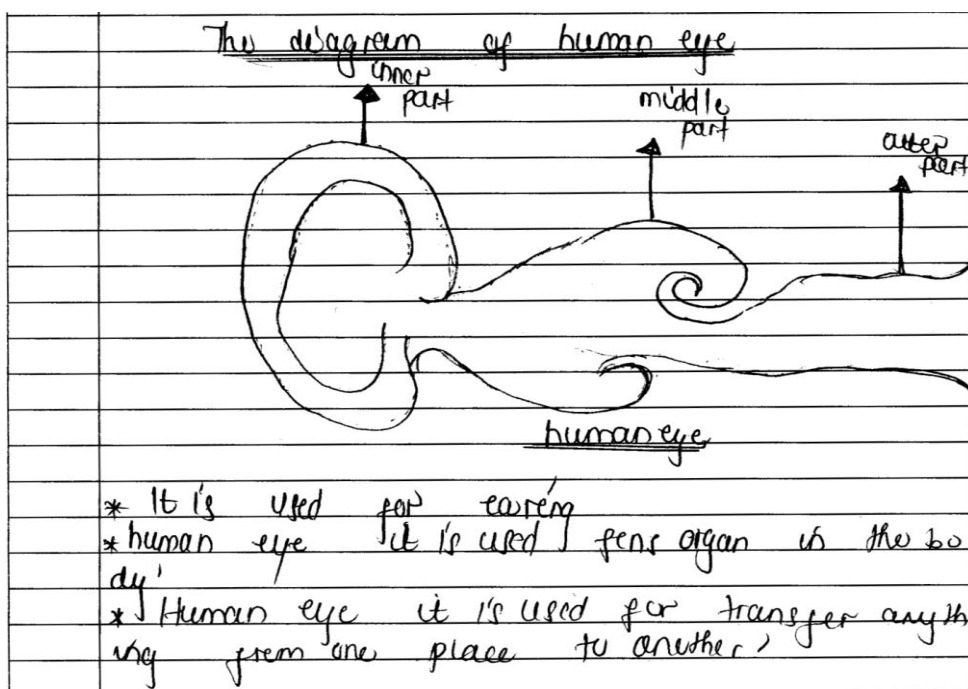 The diagram of human eye
inner
part
middle
part
outer
part
human eye
* It is used for earing
* human eye it is used fens organ in the bo
dy'
* Human eye it is used for transfer anyth
ing from one place to another,